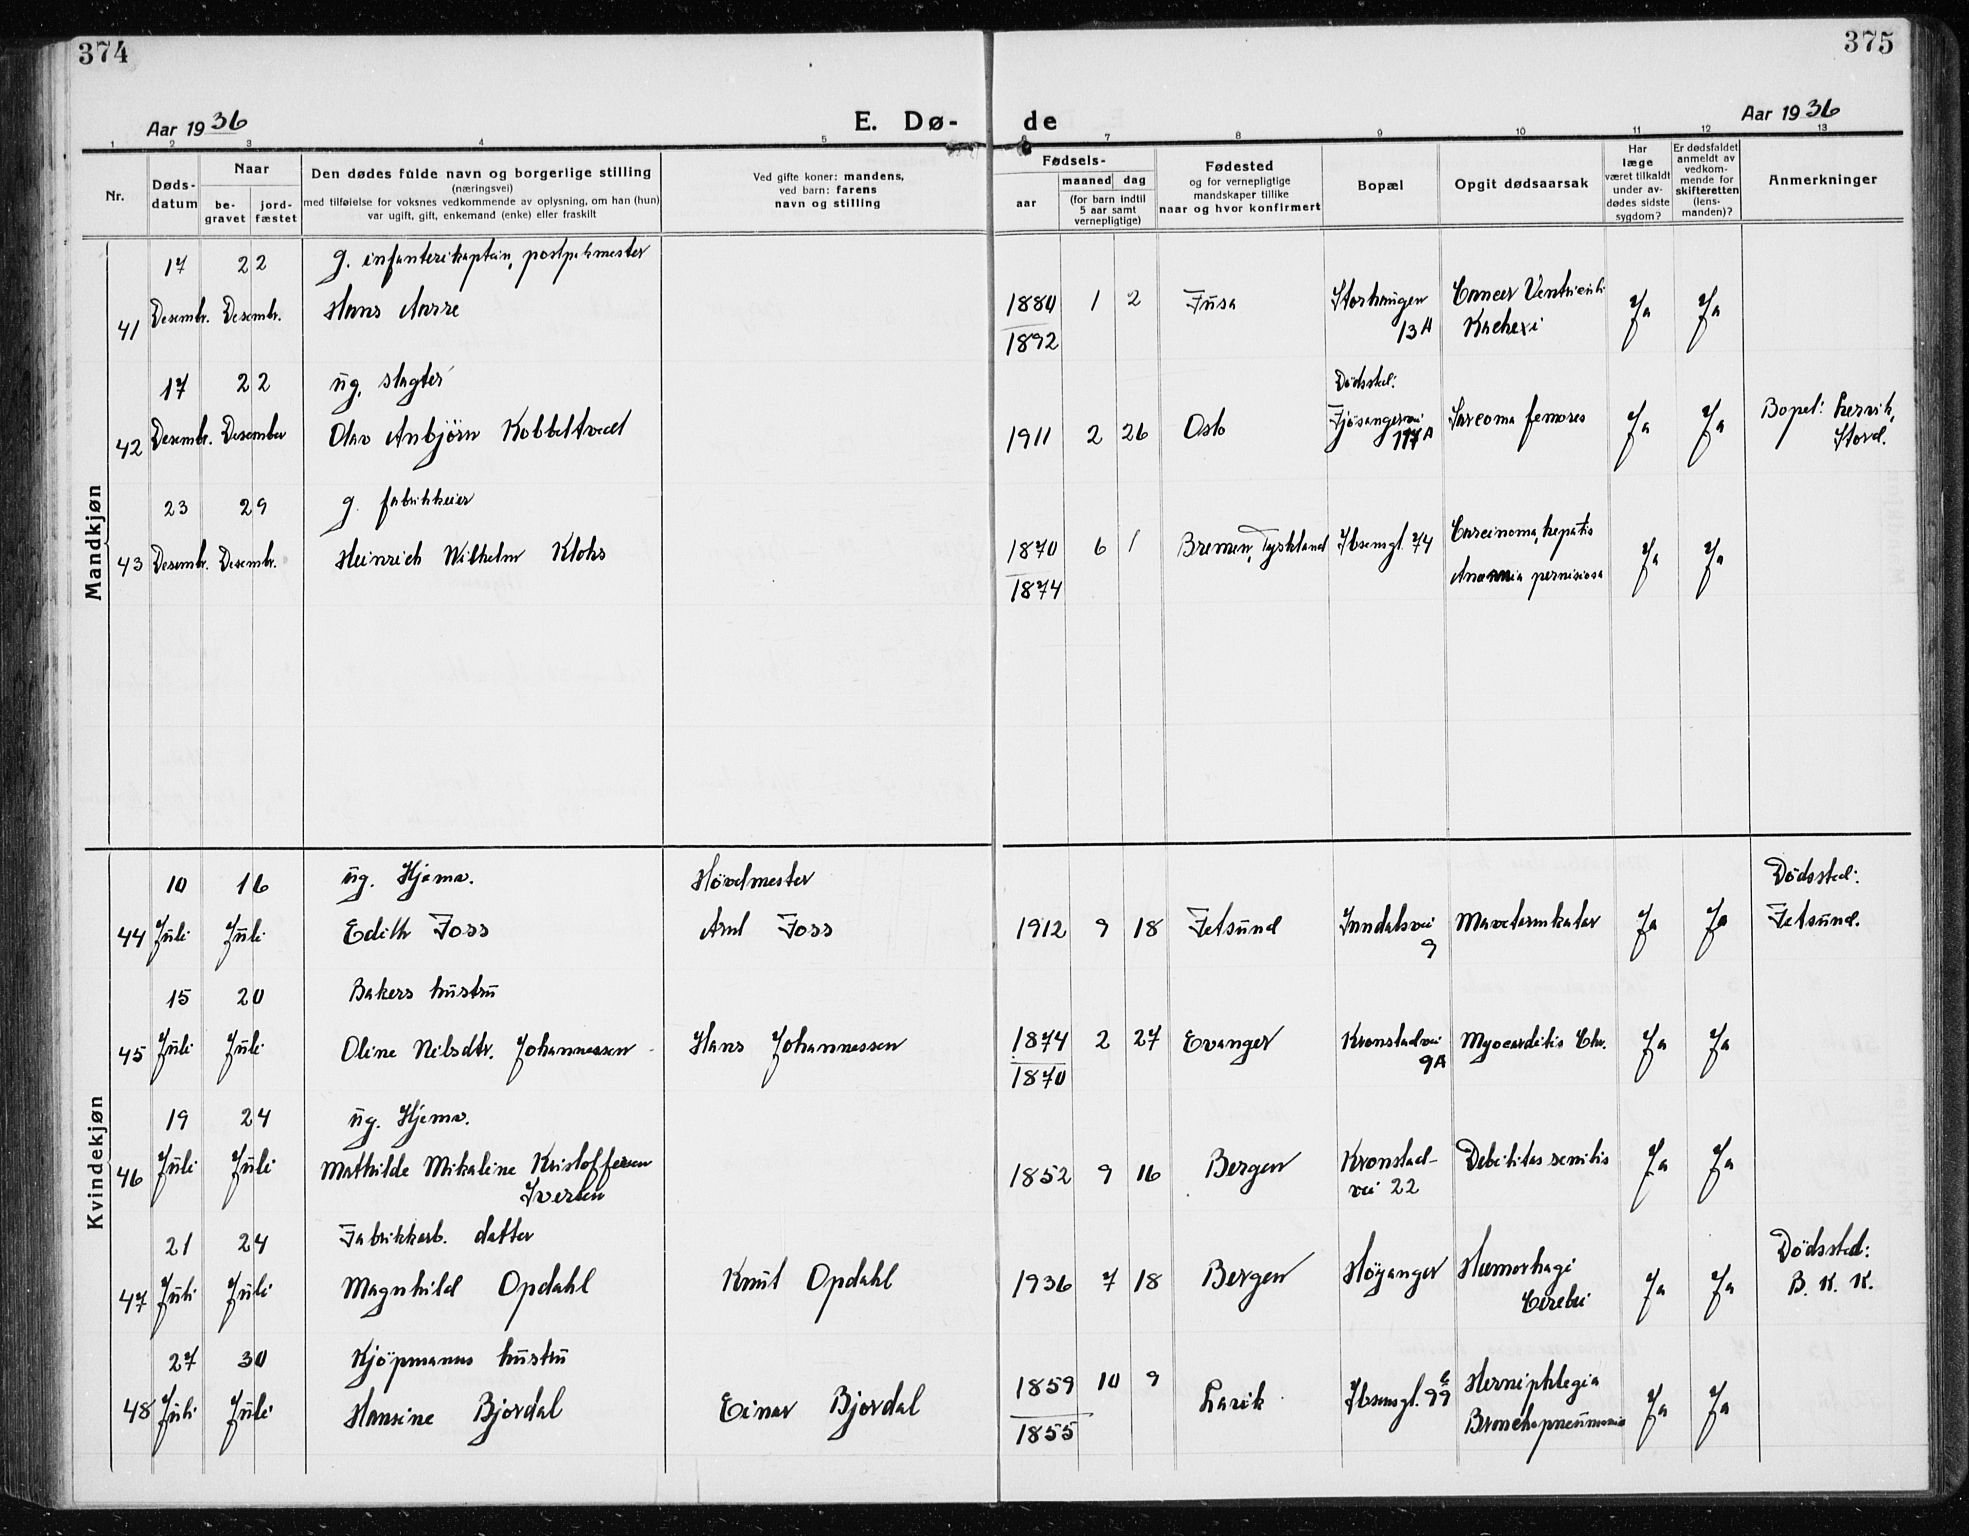 374
375
Aar 1936
E. Dø-
de
Aar 1936
1 2 3 4 5 6 7 8 9 10 11 12 13
Nr.
Døds-
datum
Naar
be-
gravet
jord-
fæstet
Den dødes fulde navn og borgerlige stilling
(næringsvei)
med tilføielse for voksnes vedkommende av oplysning, om han (hun)
var ugift, gift, enkemand (enke) eller fraskilt
Ved gifte koner: mandens,
ved barn: farens
navn og stilling
Fødsels-
aar
maaned dag
(for barn indtil
5 aar samt
vernepligtige)
Fødested
og for vernepligtige
mandskaper tillike
naar og hvor konfirmert
Bopæl
Opgit dødsaarsak
Har
læge
været tilkaldt
under av-
dødes sidste
sygdom?
Er dødsfaldet
anmeldt av
vedkom-
mende for
skifteretten
(lens-
manden)?
Anmerkninger
Mandkjøn
17 22 g. infanterikaptein,
41 Desembr. Desembr. Hans Aarre 1880 1 2 Fusa Storhaugen Cancer Ventriculi Ja Ja
1892 13A Kachexi
17 22 ug. slagter Dödssted:
42 Desembr. Desember Olav Anbjørn Kobbeltvedt 1911 2 26 Oslo Fjösangervei Sarcoma femores Ja Ja Bopel: Lervik,
A Stord.
23 29 g. fabrikkeier
43 Desembr. Desembr. Heinrich Wilhelm Klohs 1870 6 1 Bremen, Tyskland Ibsensgt. 74 Carcinoma hepatis Ja Ja
1874 Anæmia pernisiosa
Kvindekjøn
10 16 ug. Hjemv. Hövelmester Dödssted:
44 Juli Juli Edith Foss Arnt Foss 1912 9 18 Fetsund Inndalsvei Mavetarmkatar Ja Ja Fetsund.
9
15 20 Bakers hustru
45 Juli Juli Oline Nilsdtr. Johannessen Hans Johannessen 1874 2 27 Evanger Kronstadvei Myocarditis Chr. Ja Ja
1870 9A
19 24 ug. Hjemv.
46 Juli Juli Mathilde Mikaline Kristoffersen 1852 9 16 Bergen Kronstad- Debilitas senilis Ja Ja
Iversen vei 22
21 24 Fabrikkarb. datter Dödssted:
47 Juli Juli Magnhild Opdahl Knut Opdahl 1936 7 18 Bergen Höyanger Hæmorhagi Ja Ja B. K. K.
Cerebri
27 30 Kjöpmanns hustru
48 Juli Juli Hansine Bjordal Einar Bjordal 1859 10 9 Larvik Ibsensgt. Hemiphlegia Ja Ja
1855 Bronchopneumonia